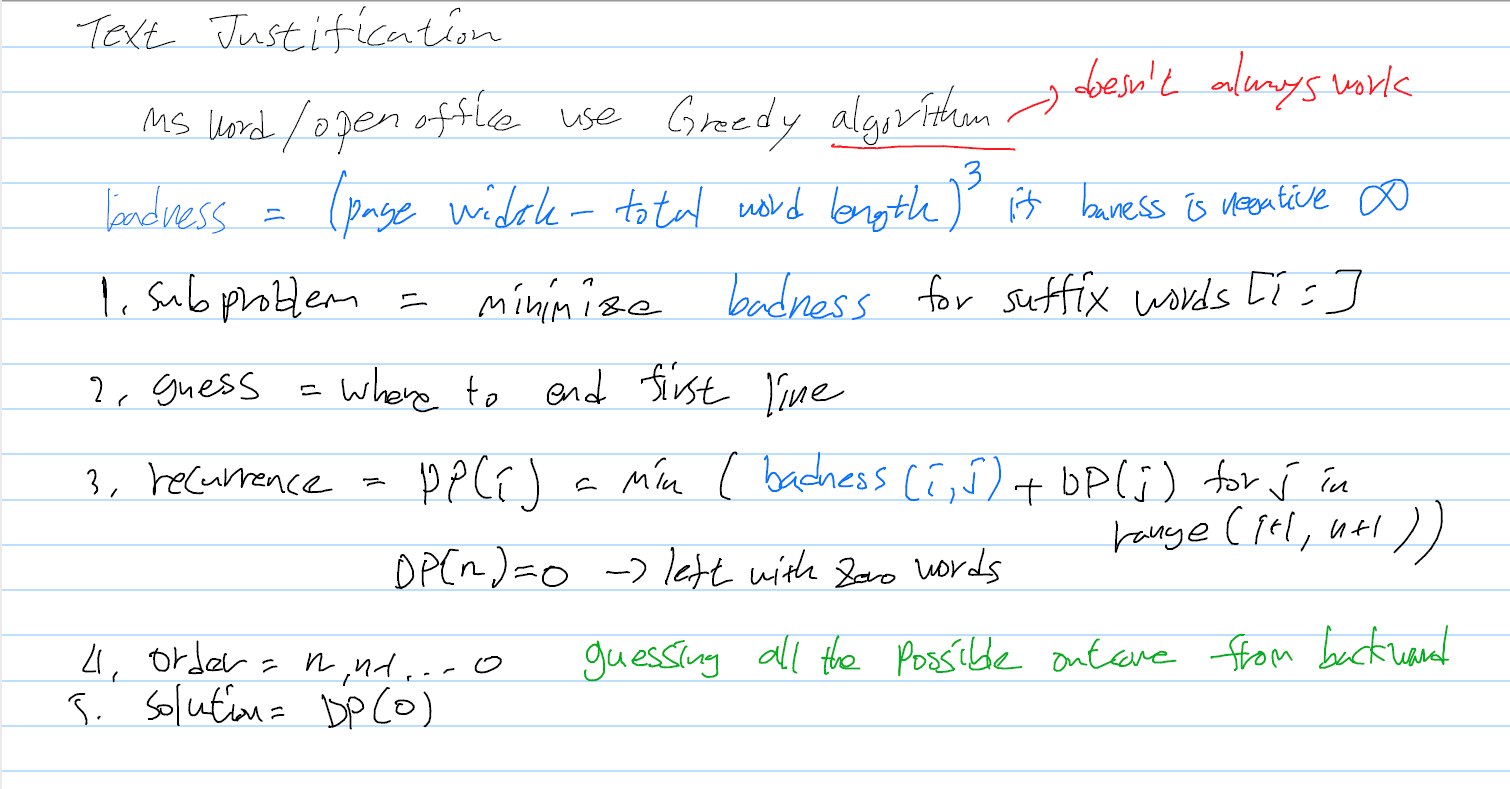 Text Justification
MS Word/open office use Greedy algorithm → doesn't always work
badness = (page width - total word length)^3 if baness is negative ∞
1. Subproblem = minimize badness for suffix words [i:]
2. guess = where to end first line
3. recurrence = DP(i) = min ( badness (i,j) + DP(j) for j in
range (i+1, n+1))
DP(n)=0 → left with zero words
4. order = n, n-1, ... 0 guessing all the possible outcome from backward
5. solution = DP(0)